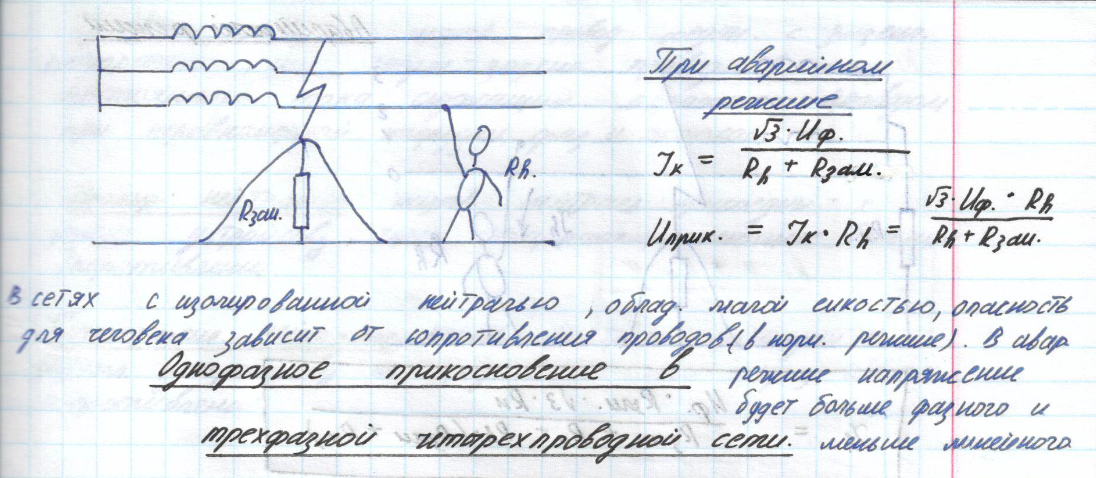 При аварийном
режиме
Iк = √3·Uф. / Rh + Rзам.
Uприк. = Iк·Rh = √3·Uф.·Rh / Rh + Rзам.
Rзам.
Rh.
В сетях с изолированной нейтралью, облад. малой емкостью, опасность
для человека зависит от сопротивления проводов (в норм. режиме). В авар
режиме напряжение
будет больше фазного и
меньше линейного
Однофазное прикосновение в
трехфазной четырехпроводной сети.